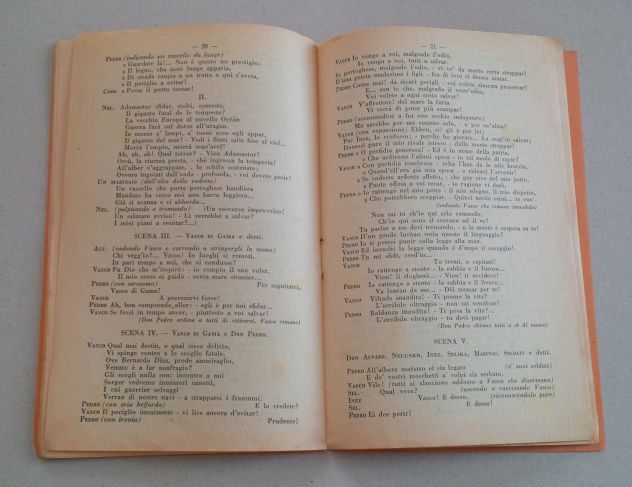 — 20 —
PEDRO (indicando un vascello da lungo)
» Guardate là!... Non è questo un prestigio;
» Il legno, che testè lungo apparia,
» Di strada cangia a un tratto e qui s'avvia,
» Il periglio a evitar!
CORO » Possa il porto toccar!
II.
NEL. Adamastor sfidar, stolti, osereste,
Il gigante fatal de le tempeste?
La vecchia Europa al novello Oceàn
Guerra farà sul dorso all'uragan.
In mezzo a' lampi, a' tuoni egli appar,
Il gigante del mar! - Vedi i flutti salir fino al ciel...
Morrà l'empio, morrà senz'avel!
Ah, ah, ah! Qual terror? - Vien Adamastor!
Ovvi, la ciurma presta, - chè ingressa la tempesta!
All'alber v'aggruppate, - lo schifo sostenate;
Ovvero ingoiati dall'onda - profonda, - voi dovete perir!
UN MARINAIO (dall'alto della vedetta)
Un vascello che porta portoghese bandiera
Mandato ha verso noi una barca leggiera...
Già si avanza e si abborda...
NEL. (palpitando e tremando) (Un soccorso improvviso!
Un salutare avviso! - Li verrebbe a salvar?
I miei piani a sventar?...)
SCENA III. - VASCO DI GAMA e detti.
ALV. (vedendo Vasco e correndo a stringergli la mano)
Chi vegg'io?... Vasco! In luoghi sì remoti,
In pari tempo a noi, chi vi condusse?
VASCO Fu Dio che m'inspirò: - io compio il suo voler,
Il mio corso ei guidò - sovra mare stranier...
PEDRO (con sarcasmo) Per seguitarci,
Vasco di Gama!
VASCO A prevenirvi forse!
PEDRO Ah, ben comprendo, allor: - egli è per noi sfidar...
VASCO Se fossi in tempo ancor, - piuttosto a voi salvar!
(Don Pedro ordina a tutti di ritirarsi. Vasco rimane)
SCENA IV. - VASCO DI GAMA e DON PEDRO.
VASCO Qual mai destin, o qual cieco delirio,
Vi spinge contro a lo scoglio fatale,
Ove Bernardo Diaz, prode ammiraglio,
Venuto è a far naufragio?
Gli scogli sulla son: incontro a noi
Sorger vedremo innumeri canotti,
I cui guerrier selvaggi
Verran di nostre navi - a strapparsi i frantumi.
PEDRO (con aria beffarda) E lo credete?
VASCO Il periglio imminente - vi lice ancora d'evitar!
PEDRO (con ironia) Prudente!
— 21 —
VASCO Io vengo a voi, malgrado l'odio,
Io vengo a voi, tutti a salvar.
Io portoghese, malgrado l'odio, - vi vo' da morte certa strappar!
D'una patria medesima i figli - fra di loro si denno aitar.
PEDRO Come mai! da sicuri perigli - voi volete ciascun preservar!
E... con io che, malgrado il vostr'odio,
Voi volete ad ogni costo salvar!
VASCO V'affrettate! del mare la furia
Vi terrà di poter più scampar!
PEDRO (accostandosi a lui con occhio indagatore)
Ma sarebbe per me cotanto zelo, - o per un'altra?
VASCO (con espansione) Ebben, sì! gli è per lei;
Per Inez, lo confesso, - perchè ho giurato... La voglio salvar;
Dovessi pure il mio rivale istesso - dalla morte strappar!
PEDRO » O perfidia generosa! - Ed è in nome della patria,
» Che ardireste l'altrui sposa - in tal modo di rapir?
VASCO » Con perfidia tenebrosa - tolta l'hai da le mie braccia,
» Quand'ell'era già mia sposa - e rubasti l'avvenir!
» Se codesto ardente affetto, - che può vive nel mio petto,
» Puote offesa a voi recar, - in ragione vi darò.
PEDRO » Io rattengo nel mio petto - il mio sdegno, il mio dispetto,
» Che potrebbero scoppiar. - Quinci uscite omai... lo vuo'.
(vedendo Vasco che rimane immobile)
Non sai tu ch'io qui solo comando,
Ch'io qui sono il sovrano ed il re?
Tu parlar a me devi tremando, - o la morte è sospesa su te!
VASCO D'un prode lusitan parla questo il linguaggio?
PEDRO Io ti potrei punir colla legge alla man.
VASCO Ed invochi la legge quando è d'uopo il coraggio!
PEDRO Tu mi sfidi, cred'io...
VASCO Tu tremi, o capitan!
Io rattengo a stento - la rabbia e il livor...
Vien! li sfogherà... - Vien! ti accidevi!
PEDRO Io rattengo a stento - la rabbia e il livor...
Va lontan da me... - Dèi tremar per te!
VASCO Viltade inaudita! - Ti preme la vita?
L'orribile oltraggio, - non sai vendicar!
PEDRO Baldanza inaudita! - Ti pesa la vita?...
L'orribile oltraggio - tu devi pagar!
(Don Pedro chiama tutti a sè di nuovo)
SCENA V.
DON ALVARO, NELUSKO, INEZ, SELIKA, MARINAI, SOLDATI e detti.
PEDRO All'albero maestro ei sia legato (a' suoi soldati)
E de' vostri moschetti a' colpi sia serbato.
VASCO Vile! (tutti si slanciano addosso a Vasco che disarmano)
SEL. Qual voce? (uscendo e ravvisando Vasco)
INEZ Vasco! È desso. (riconoscendolo pure)
SEL. È desso!
PEDRO Ei dee perir!